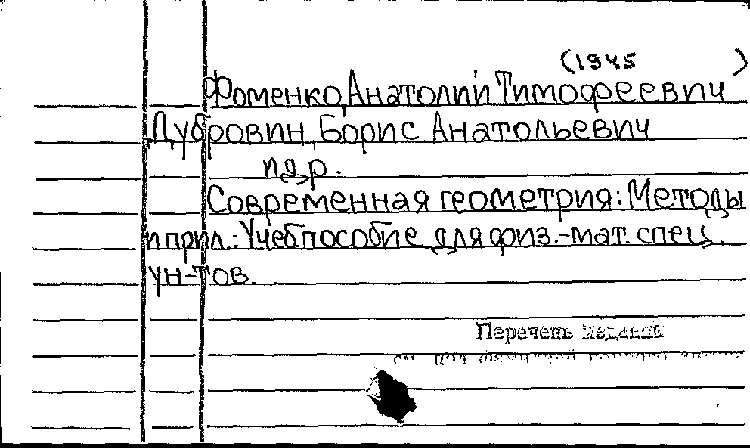 (1945 )
Фоменко, Анатолий Тимофеевич
Дубровин, Борис Анатольевич
п др.
Современная геометрия: Методы
и прил.: Учеб пособие для физ.-мат. спец.
ун-тов.
Перечень изданий